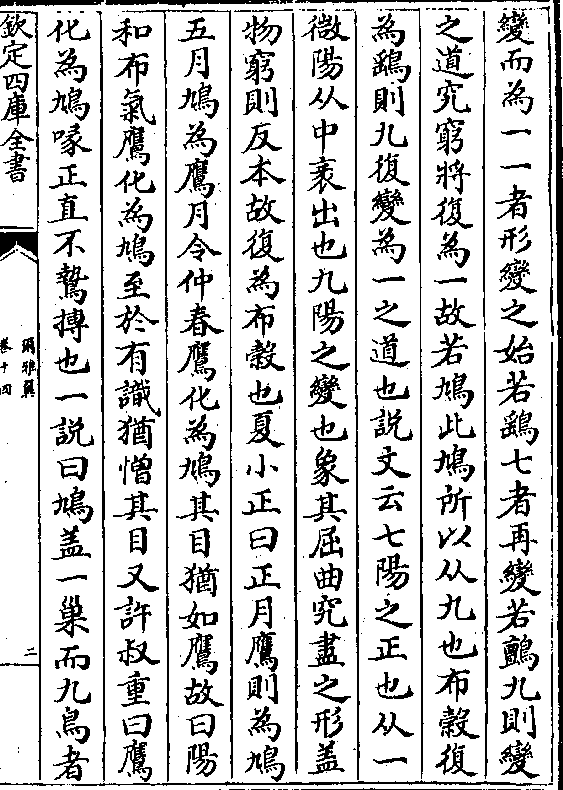 變而為一一者形變之始若鷂七者再變若鸇九則變
之道究窮將復為一故若鳩此鳩所以从九也布穀復
為鷂則九復變為一之道也説文云七陽之正也从一
微陽从中衺出也九陽之變也象其屈曲究盡之形蓋
物窮則反本故復為布穀也夏小正曰正月鷹則為鳩
五月鳩為鷹月令仲春鷹化為鳩其目猶如鷹故曰陽
和布氣鷹化為鳩至於有識猶憎其目又許叔重曰鷹
化為鳩喙正直不鷙搏也一説曰鳩盖一巢而九鳥者
欽定四庫全書
爾雅翼
卷十四
二